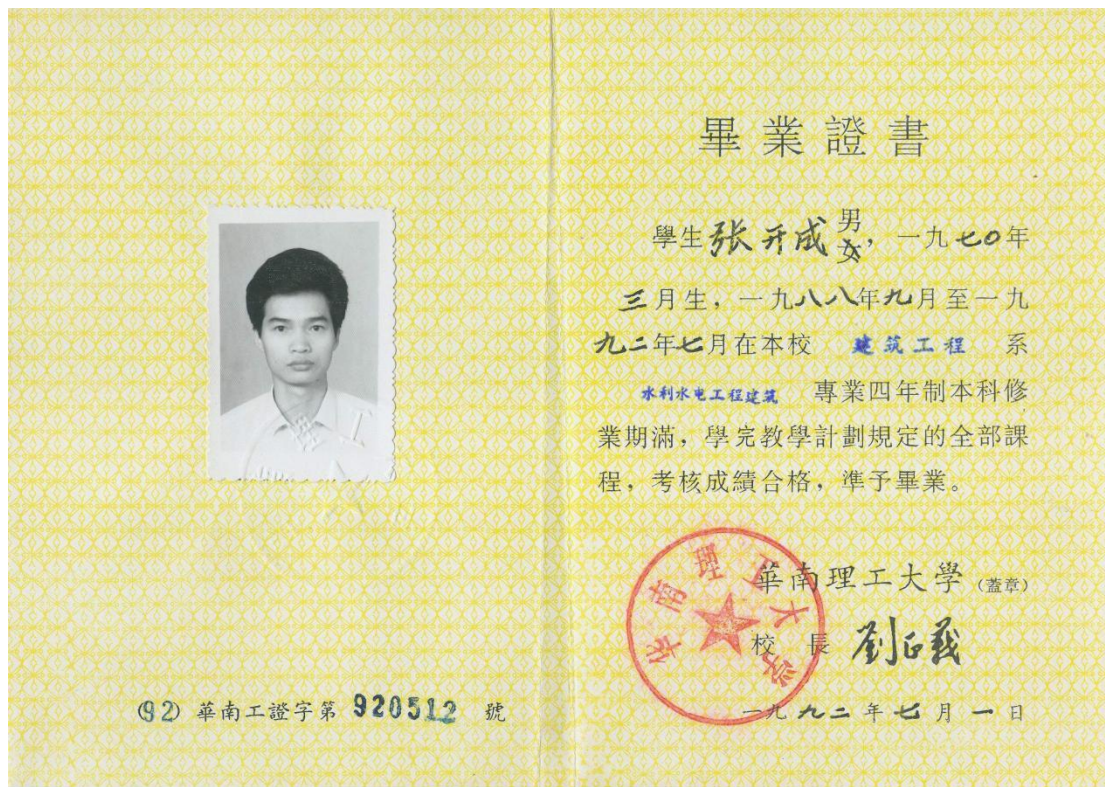 (92) 華南工證字第 920512 號
畢業證書
學生张开成男
女，一九七〇年
三月生，一九八八年九月至一九
九二年七月在本校 建筑工程 系
水利水电工程建筑 專業四年制本科修
業期滿，學完教學計劃規定的全部課
程，考核成績合格，準予畢業。
華南理工大學（蓋章）
校 長 劉正義
一九九二年七月一日
华南理工大学